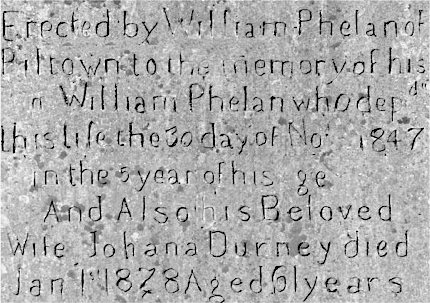 Erected by William Phelan of
Piltown to the memory of his
William Phelan who depd
this life the 30 day of Nov 1847
in the 5 year of his age
And Also his Beloved
Wife Johana Durney died
Jan 1st 1878 Aged 61 years